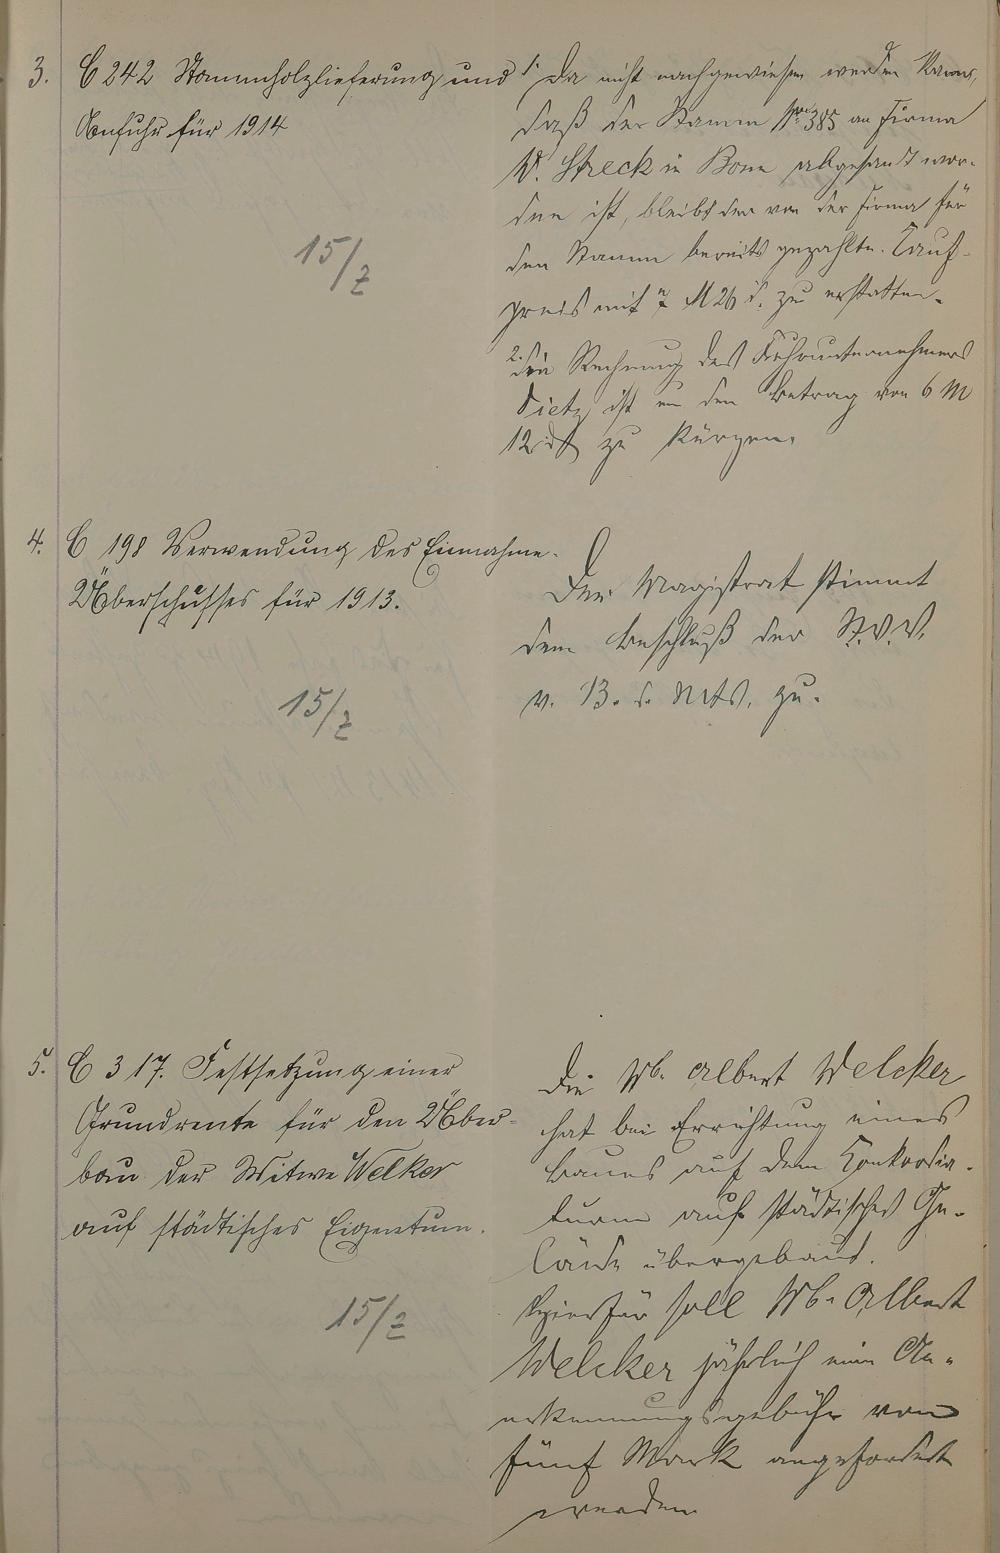 3. C 242 Stammholzlieferung und
Anfuhr für 1914
15/7
1. Da nicht nachgewiesen werden kann,
daß der Stamm No 385 an Firma
W. Streck in Bonn abgesandt wor-
den ist, bleibt der von der Firma für
den Stamm bereits gezahlte Kauf-
preis mit M 26 zu erstatten.
2. Die Rechnung des Fuhrunternehmers
Dietz ist um den Betrag von 6 M
12 zu kürzen.
4. C 198 Verwendung des Einnahme-
Überschusses für 1913.
15/7
Der Magistrat stimmt
dem Beschluß der St.V.V.
v. 13. d. Mts. zu.
5. C 317. Festsetzung einer
Grundrente für den Über-
bau der Witwe Welker
auf städtisches Eigentum.
15/7
Die Wb. Albert Welcker
hat bei Errichtung eines
Baues auf dem Konkordia-
turm auf städtisches Ge-
lände übergebaut.
Hierfür soll Wb. Albert
Welcker jährlich eine An-
erkennungsgebühr von
fünf Mark angefordert
werden